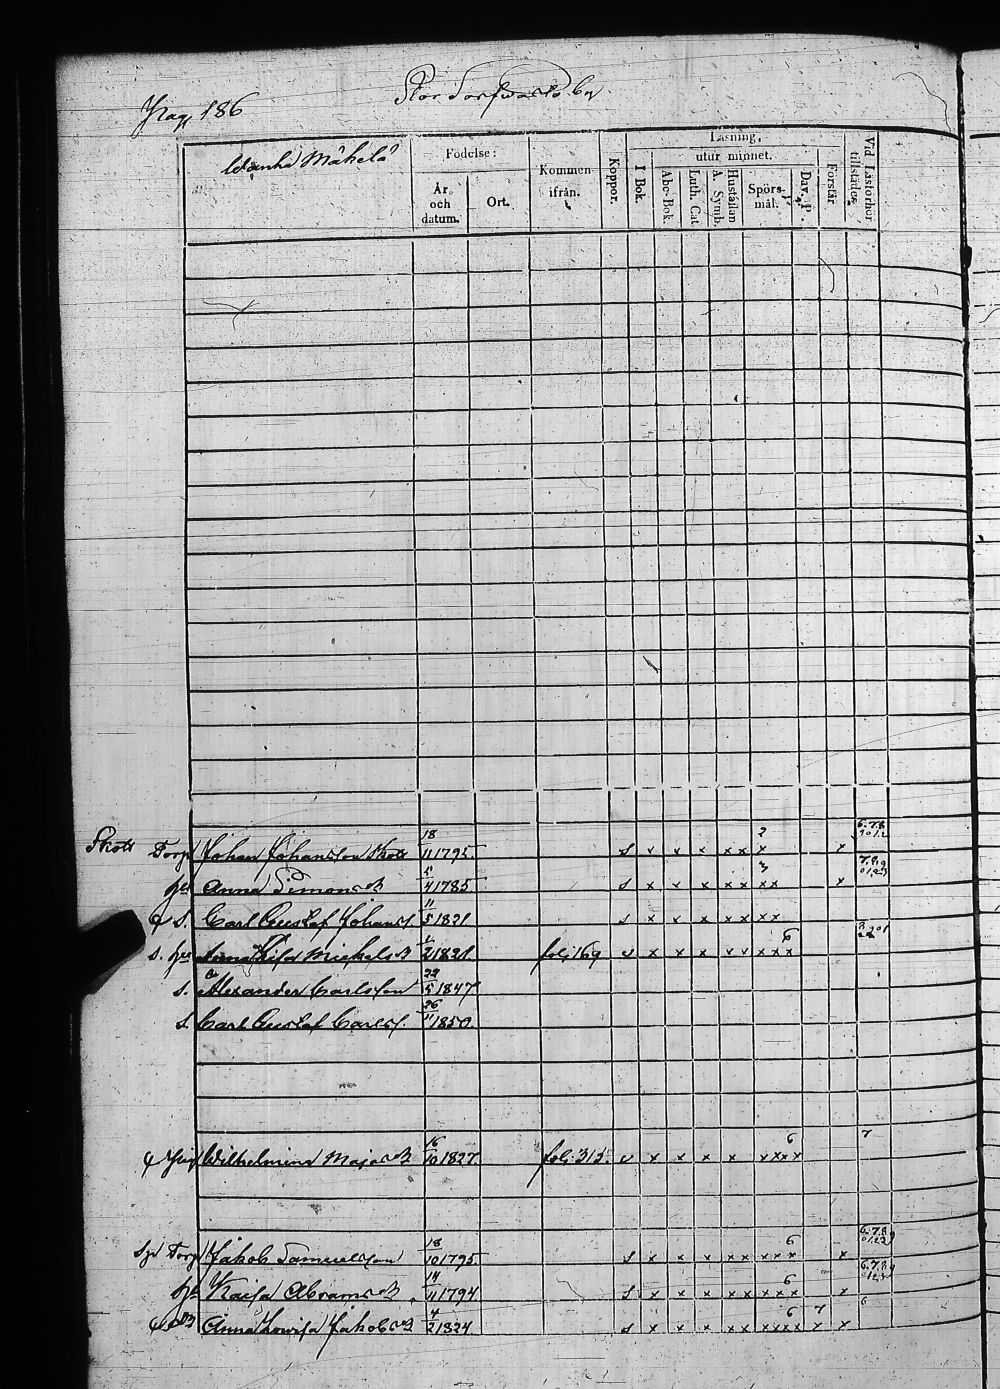 Pag 186
Stor Sorfwasto by
Wanha Mäkelä
Födelse:
År och datum.
Ort.
Kommen ifrån.
Koppor.
Läsning,
utur minnet.
I Bok.
Abc-Bok.
Luth. Cat.
Hustaflan A. Symb.
Spörs-mål.
Dav. P.
Förstår
Vid Läsförhör tillstädes.
Skott Torp Johan Johansson Skott 18/11 1795 s x x x x x x 2 x 6.7.8.
hu Anna Simonsd 4 1785 s x x x x x x x 3 x 7.8.9
s. Carl Gustaf Johanss. 11/5 1821 s x x x x x x x
s. hu Anna Lisa Michelsd 2 1821 fol: 169 v x x x x x x x x 6
s. Alexander Carlsson 22/5 1847
s. Carl Gustaf Carlss. 26/11 1850.
Wilhelmina Majasd 16/10 1827. fol: 315. v x x x x x x x x 6 7
Torp Jakob Samuelsson 18/10 1795. s x x x x x x x x 6 x 6.7.8.
hu Kaisa Abramsd 14/11 1794 s x x x x x x x x 6 x 6.7.8.9
Anna Lowisa Jakobsd 4/2 1824 s x x x x x x x x x 6 7 x x 6